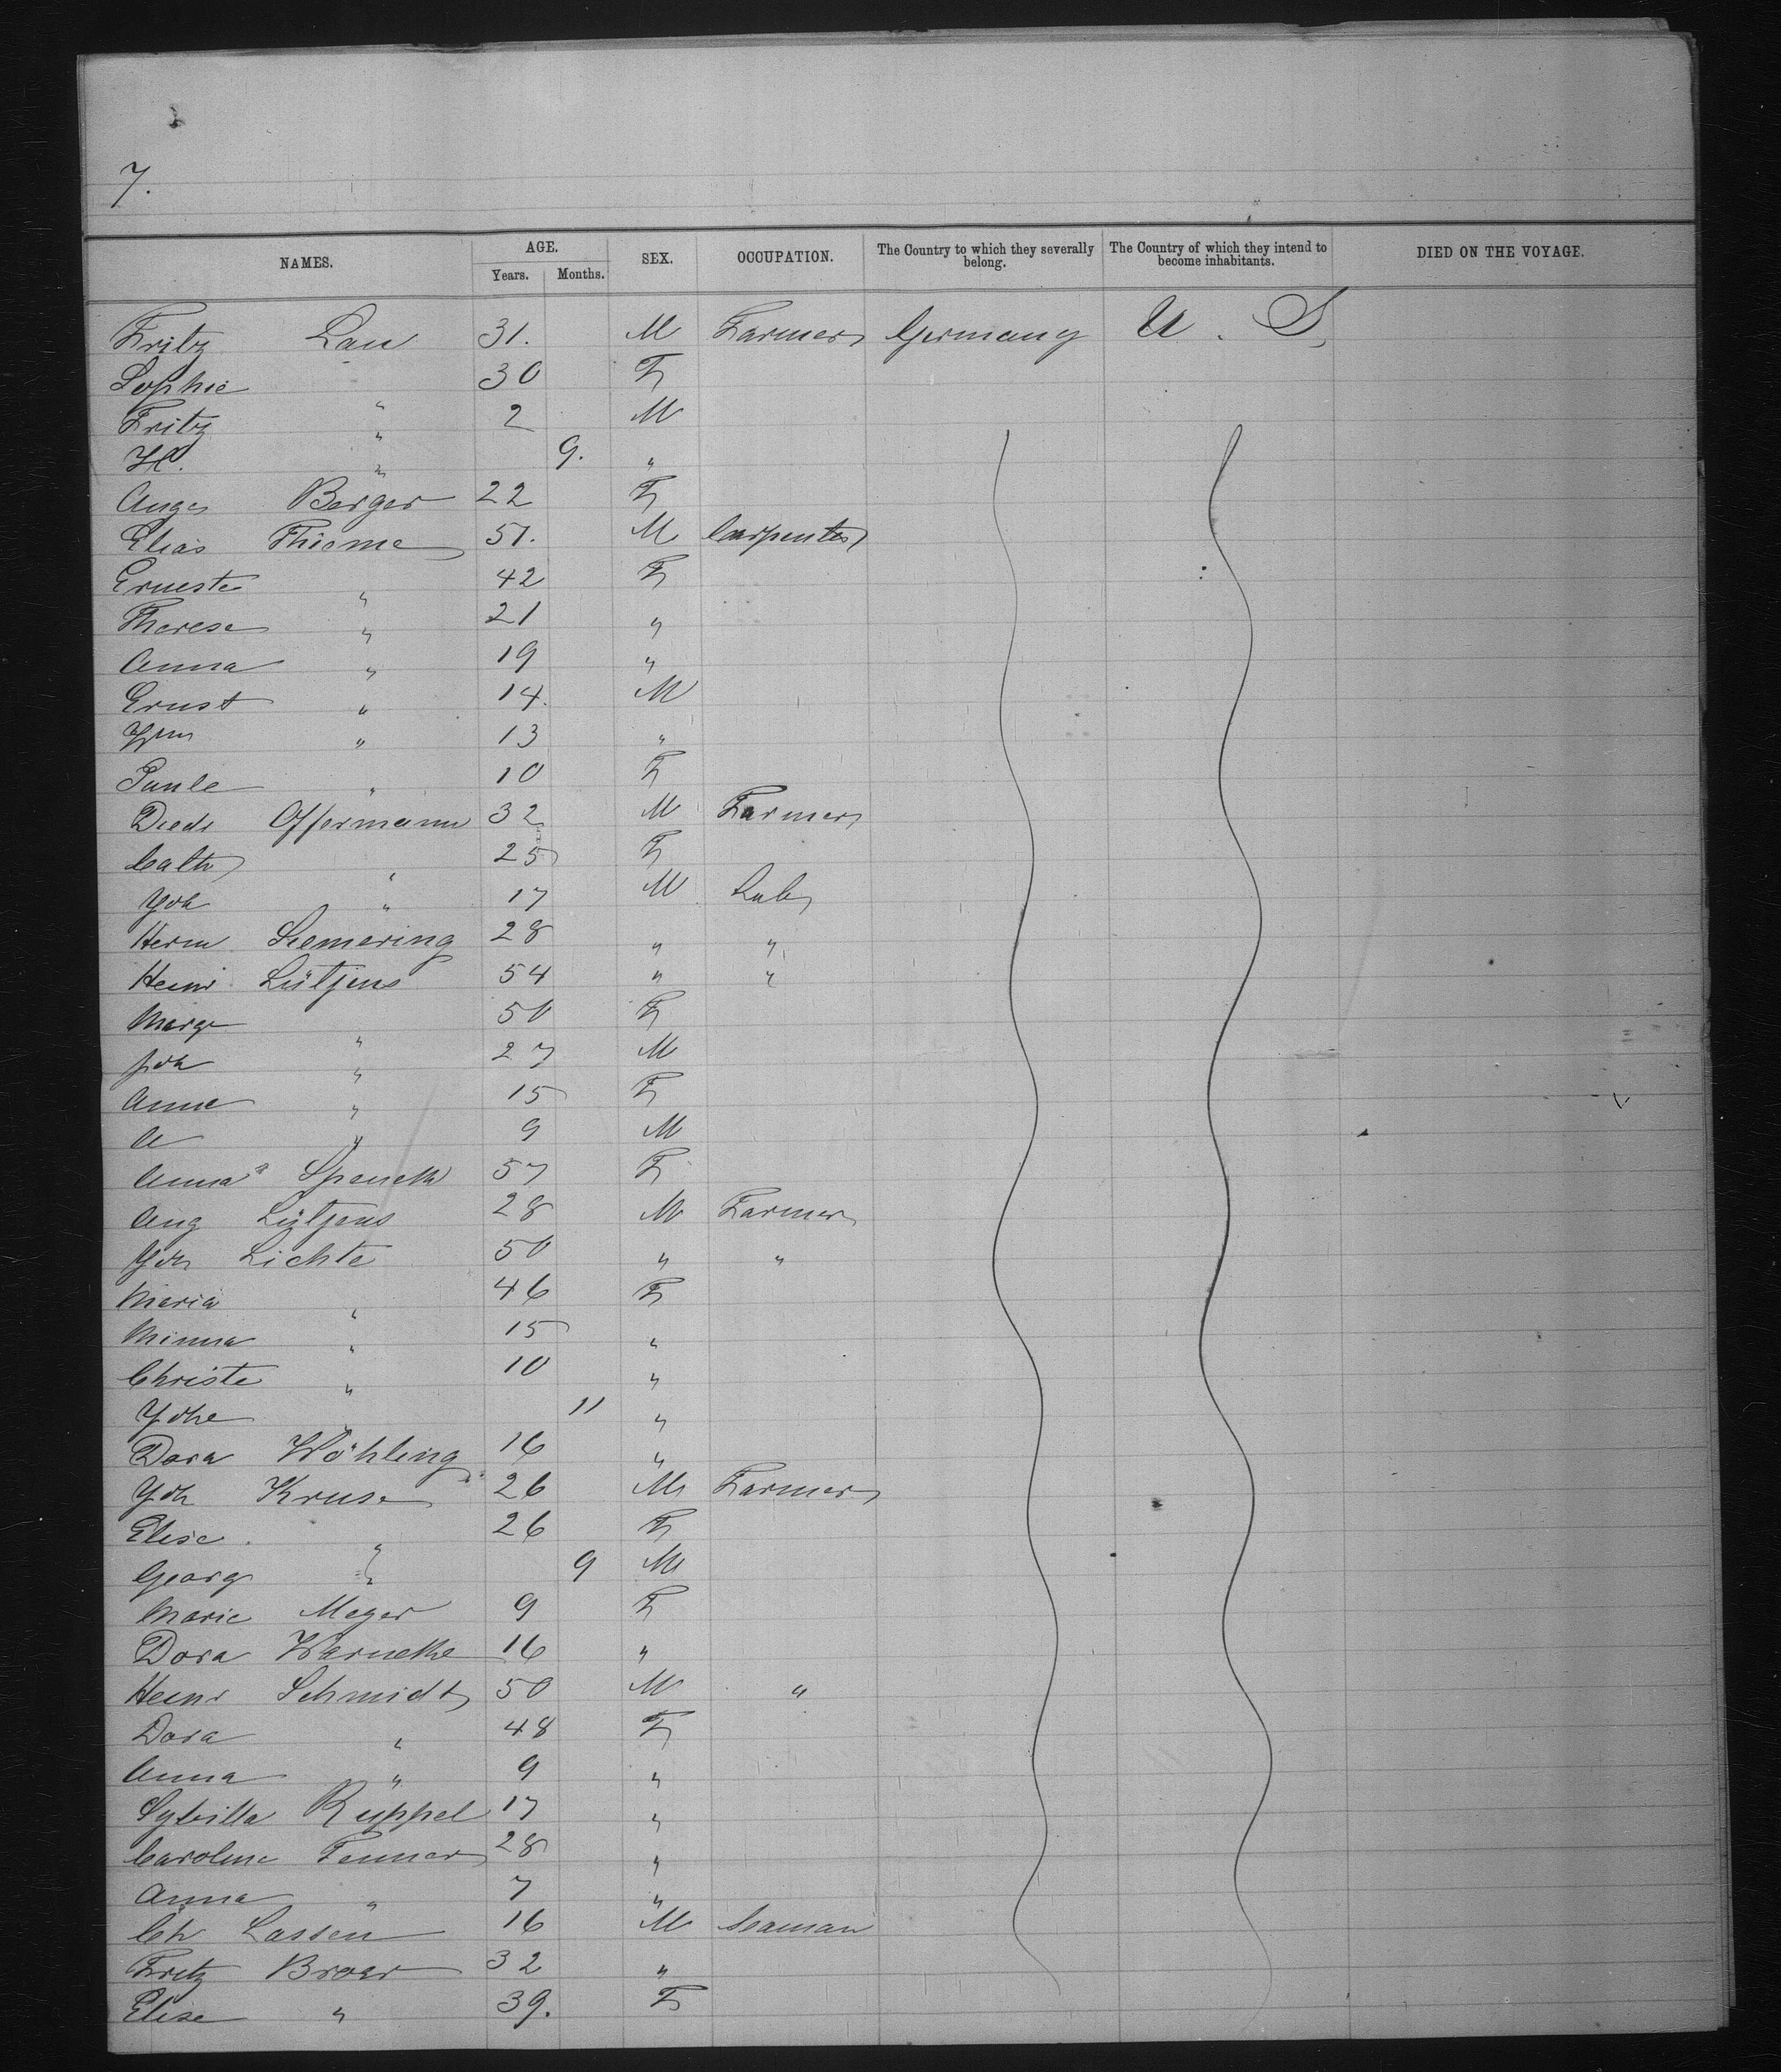 7.
NAMES. AGE. Years. Months. SEX. OCCUPATION. The Country to which they severally belong. The Country of which they intend to become inhabitants. DIED ON THE VOYAGE.
Fritz Lau 31. M Farmer Germany U. S.
Sophie " 30 F
Fritz " 2 M
H. " 9. "
Berger 22 F
Elias Thieme 51. M Carpenter
Erneste " 42 F
Therese " 21 "
Anna " 19 "
Ernst " 14. M
Hrm " 13 "
Paule " 10 F
Diedr Offermann 32 M Farmer
Cath " 25 F
Joh " 17 M Lab
Herm Siemering 28 " "
Heinr. Lütjens 54 " "
Marg " 50 F
Joh " 27 M
Anna " 15 F
A " 9 M
Anna Spanck 57 F
Aug Lütjens 28 M Farmer
Joh Lichte 50 " "
Maria " 46 F
Minna " 15 "
Christe " 10 "
Johe " 11 "
Dora Wöhling 16 "
Joh Kruse 26 M Farmer
Elise " 26 F
Georg " 9 M
Marie Meyer 9 F
Dora Warneke 16 "
Heinr Schmidt 50 M "
Dora " 48 F
Anna " 9 "
Sybilla Ruppel 17 "
Caroline Fenner 28 "
Anna " 7 "
Ch Lassen 16 M Seaman
Fritz Broer 32 "
Elise " 39. F